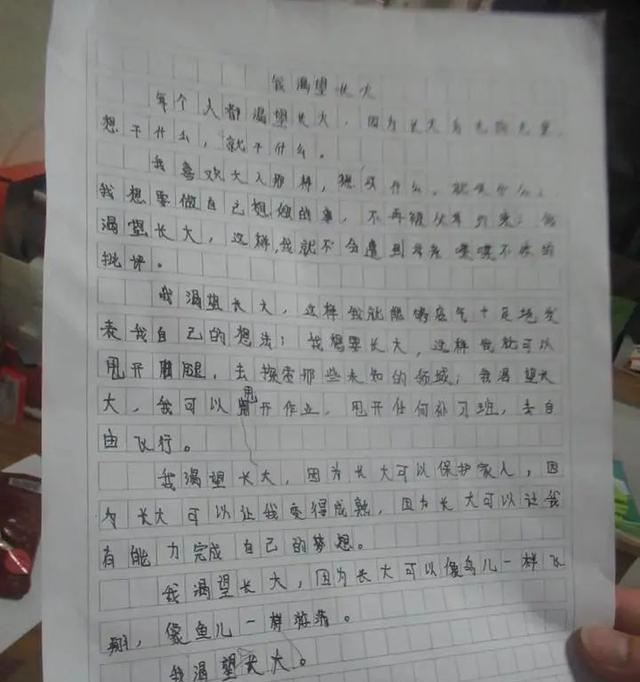 我渴望长大
每个人都渴望长大，因为长大有
想干什么，就干什么。
我喜欢大人那样，想吃什么，就吃什么；
我想要做自己想做的事，不再被父母约束；我
渴望长大，这样，我就不会遭到老师喋喋不休的
批评。
我渴望长大，这样我就能够底气十足地发
表我自己的想法；我想要长大，这样我就可以
甩开腿，去探索那些未知的领域；我渴望长
大，我可以甩开作业，甩开任何补习班，去自
由飞行。
我渴望长大，因为长大可以保护家人，因
为长大可以让我变得成熟，因为长大可以让我
有能力完成自己的梦想。
我渴望长大，因为长大可以像鸟儿一样飞
翔，像鱼儿一样游荡。
我渴望长大。